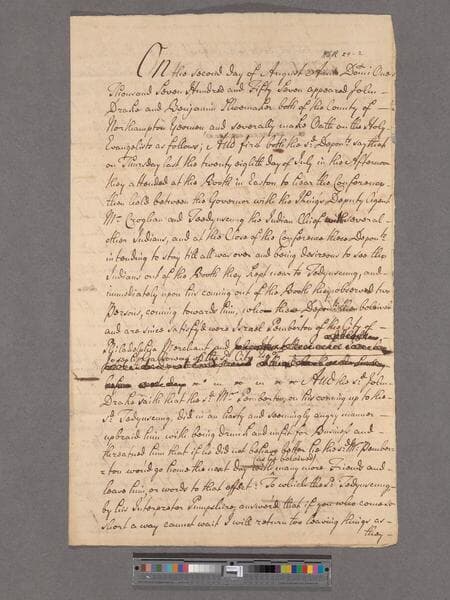 On the second day of August Domi One
Thousand Seven Hundred and Fifty Seven appeared John
Drake and Benjamin Shoemaker both of the County of
Northampton Yeomen and severally make Oath on the Holy
Evangelists as follows; And first both the sd. Deponts. say that
on Thursday last the twenty eighth day of July in the Afternoon
they attended at the Booth in Easton to hear the Conference
then held between the Governor with the Kings Deputy Agent
Mr. Croghan and Teedyuscung the Indian Chief with several
other Indians, and at the Close of the Conference these Deponts.
intending to stay till all was over and being desireous to see the
Indians out of the Booth they kept near to Tedyuscung, and
immediately upon his coming out of the Booth they observed two
Persons, coming towards him, whom these Deponts. then believed
and are since satisfyd were Israel Pemberton of the City of
Philadelphia Merchant and
Joseph Galloway of the sd. City
And the sd. John
Drake saith that the sd. Mr. Pemberton, on his coming up to the
sd. Tedyuscung, did in an hasty and seemingly angry manner
upbraid him with being drunk and unfit for Business and
threatned him that if he did not behave better he the sd. Mr. Pember-
ton woud go home the next day with many more Friends and
(as he believes)
leave him, or words to that effect: To which the sd. Tedyuscung
by his Interpreter Pumpshire, answerd that if you who come so
short a way cannot wait I will return too leaving things as
they